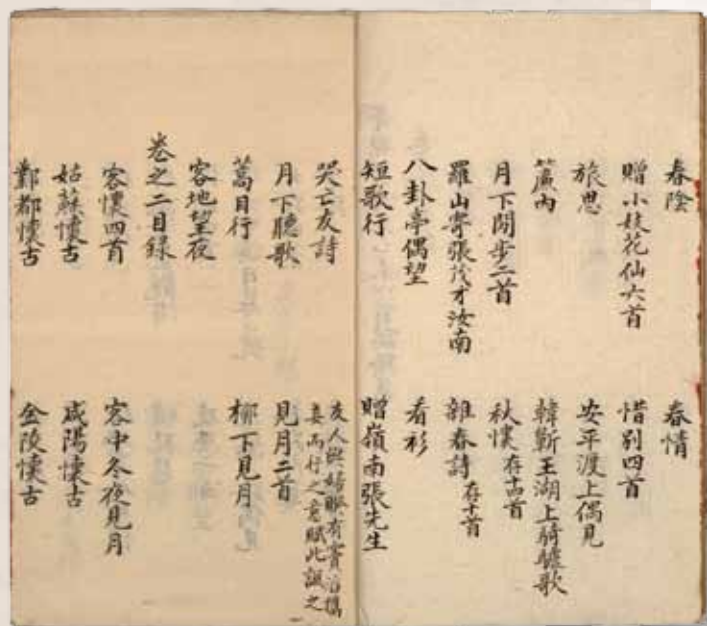 春陰 春情
贈小妓花仙六首 惜別四首
旅思 安平渡上偶見
簾內 韓蘄王湖上騎驢歌
月下閒步二首 秋懷 存十四首
羅山寄張茂才汝南 雜春詩 存十首
八卦亭偶望 看衫
短歌行 贈嶺南張先生
哭亡友詩 友人與婦睽有
而行之意賦此誠之
月下聽歌 見月二首
蒿目行 柳下見月
客地望夜
卷之二目錄
客懷四首 客中冬夜見月
姑蘇懷古 咸陽懷古
鄴都懷古 金陵懷古